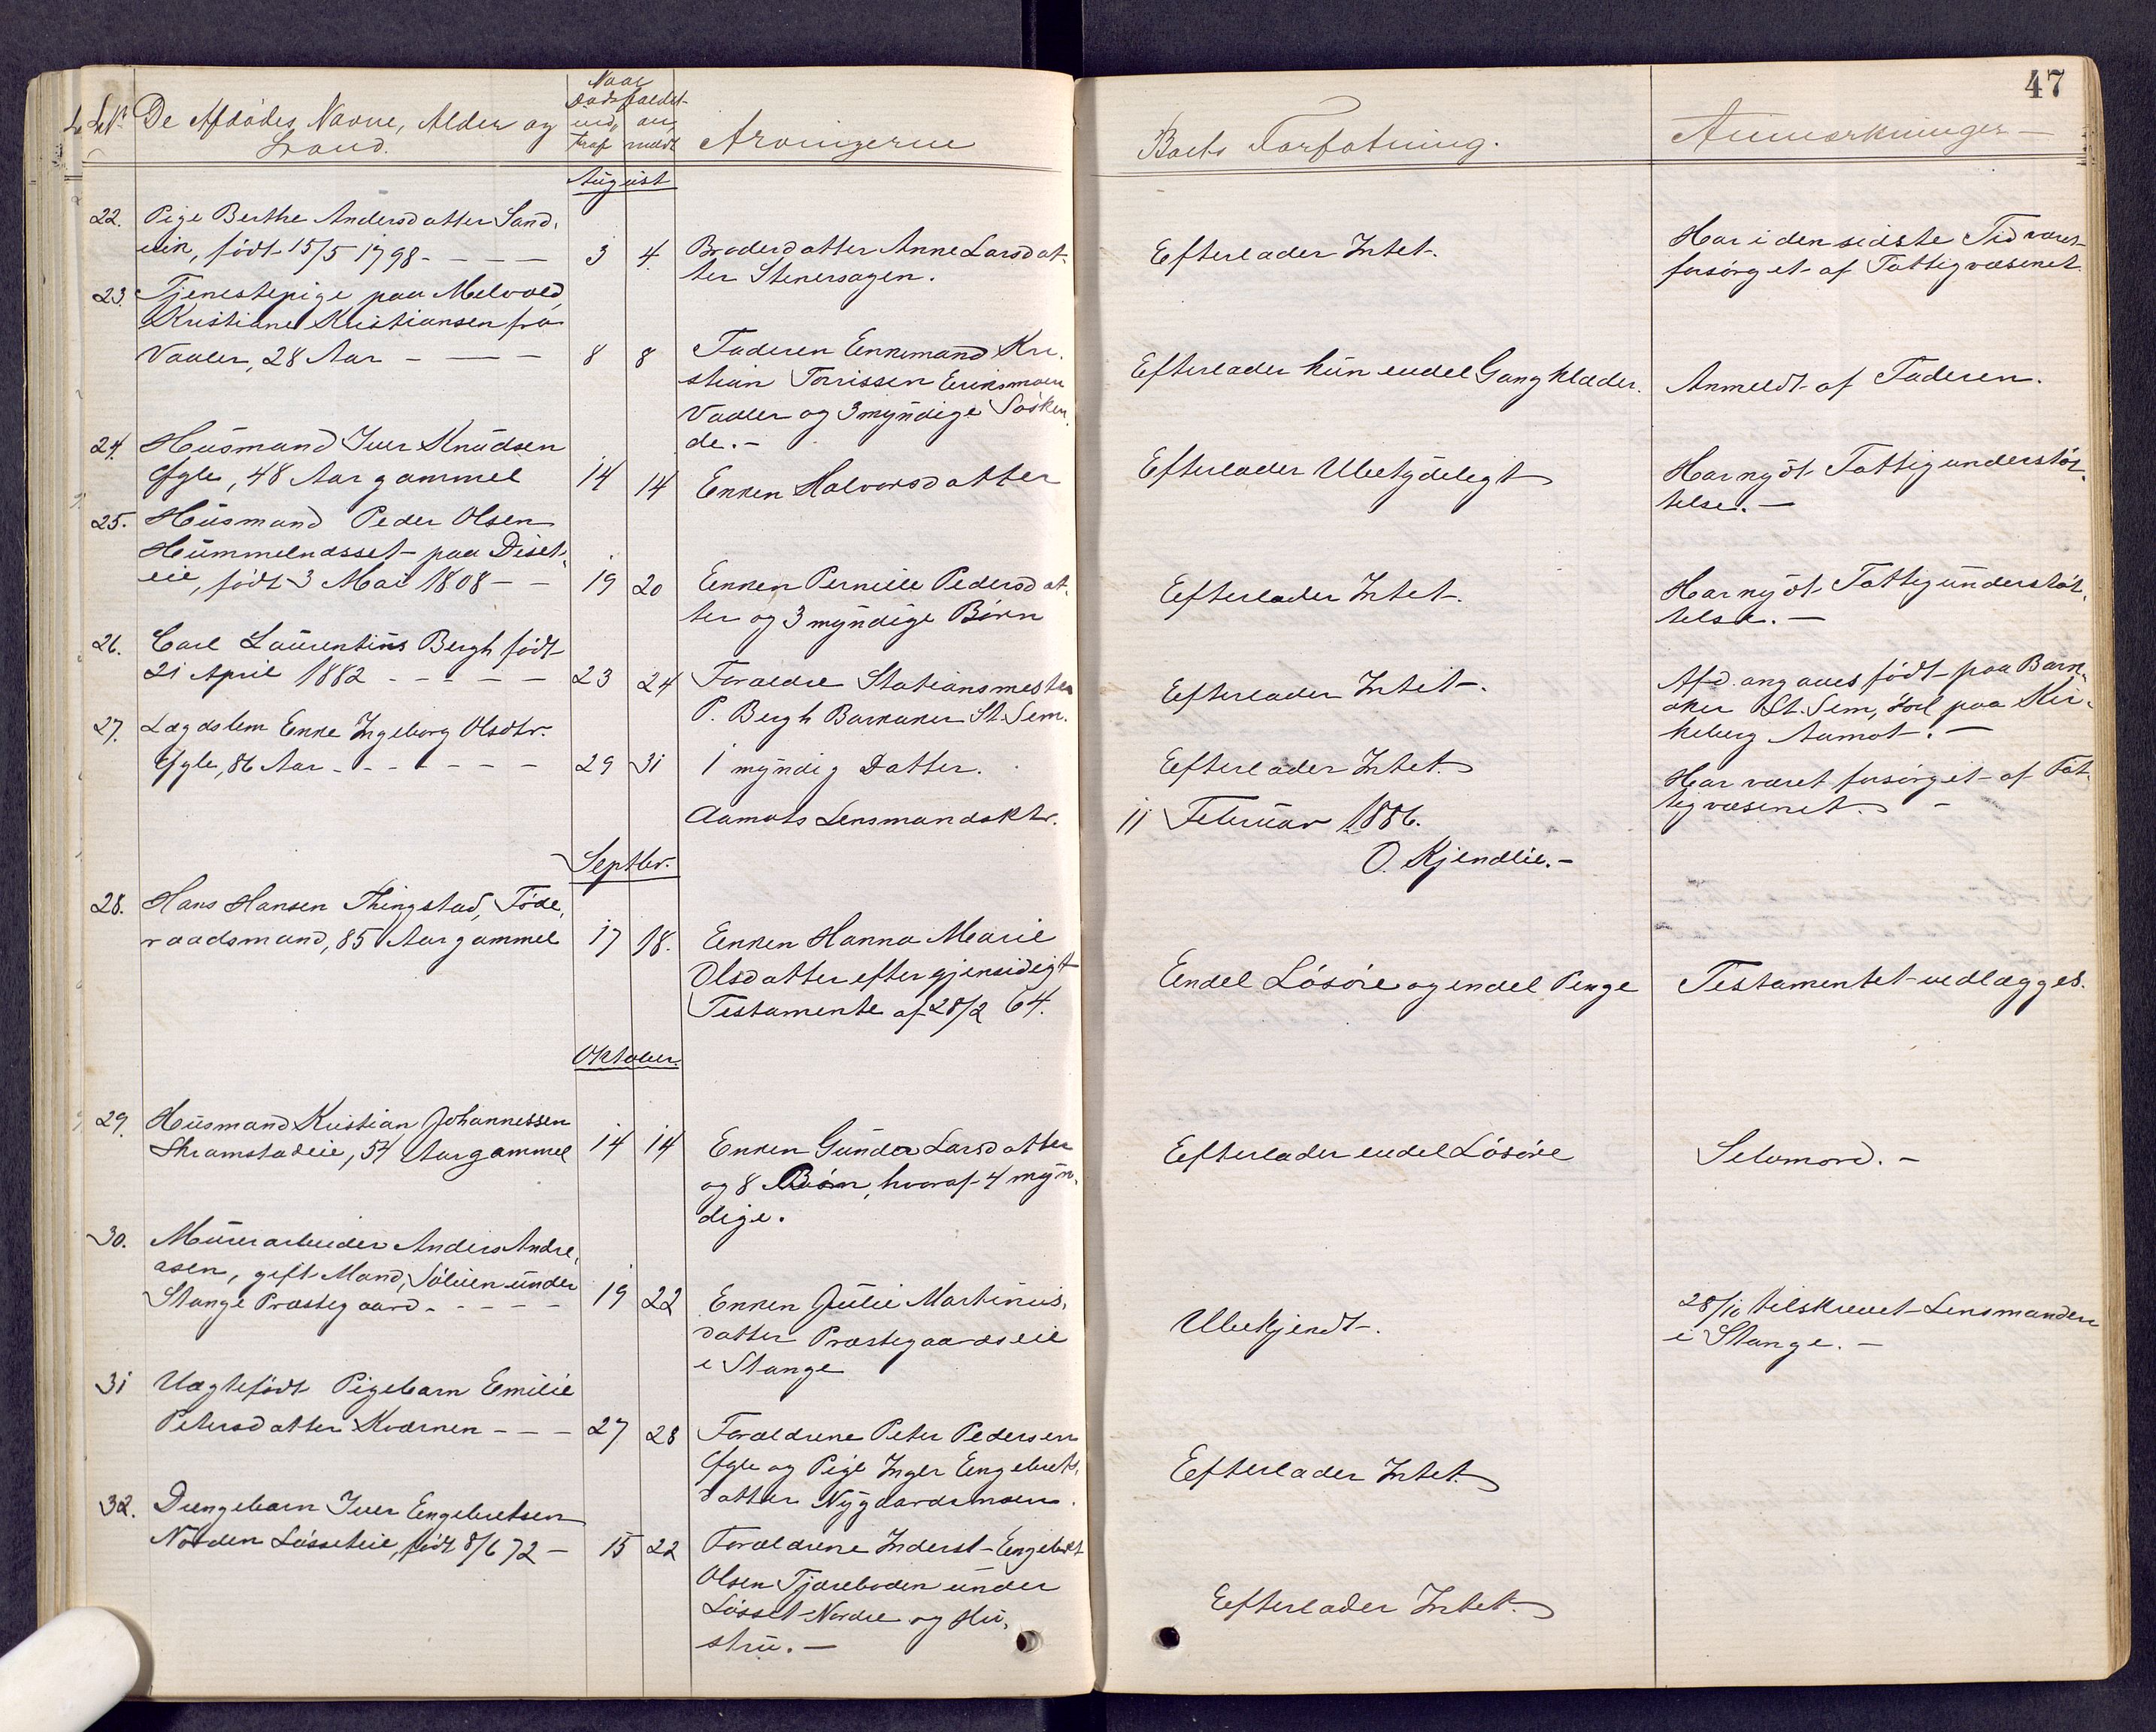 47
LNr. De Afdødes Navne, Alder og
Stand.
Naar
Dødsfaldet
ind, an,
traf meldt
Arvingerne
Boets Forfatning.
Anmærkninger
August
22. Pige Berthe Andersdatter Sand,
vik, født 15/5 1798 - - - - 3 4.
Broderdatter Anne Larsdat,
ter Stenersagen.
Efterlader Intet.
Har i den sidste Tid været
forsørget af Fattigvæsenet.
23. Tjenestepige paa Melvold,
Kristiane Kristiansen fra
Vaaler, 28 Aar - - - 8 8
Faderen Enkemand Kri,
stian Torrissen Eriksmoen
Vaaler og 3 myndige Søsken,
de. -
Efterlader kun endel Gangklæder.
Anmeldt af Faderen.
24. Husmand Iver Knudsen
Ygle, 48 Aar gammel 14 14
Enken Halvorsdatter
Efterlader Ubetydeligt
Har nydt Fattigunderstøt,
telse. -
25. Husmand Peder Olsen
Hummelnæsset paa Diset,
eie, født 3 Mai 1808 - - 19 20
Enken Pernille Pedersdat,
ter og 3 myndige Børn
Efterlader Intet.
Har nydt Fattigunderstøt,
telse. -
26. Carl Laurentius Bergh født
21 April 1882 - - - - - 23 24
Forældre Stationsmester
P. Bergh Barkaker St. Sem.
Efterlader Intet.
Afd. angaves født paa Bark,
aker St. Sem, død paa Kir,
keberg Aamot. -
27. Lægdslem Enke Ingeborg Olsdtr.
Ygle, 86 Aar - - - - - - 29 31
1 myndig Datter.
Efterlader Intet.
Har været forsørget af Fat,
tigvæsenet. -
Aamots Lensmandsktr. 11 Februar 1886.
O. Kjendlie. -
Septbr.
28. Hans Hansen Thingstad, Føde,
raadsmand, 85 Aar gammel 17 18.
Enken Hanna Marie
Olsdatter efter gjensidigt
Testamente af 28/2 64.
Endel Løsøre og endel Penge
Testamentet vedlægges.
Oktober.
29. Husmand Kristian Johannessen
Skramstadeie, 54 Aar gammel 14 14
Enken Gunder Larsdatter
og 8 Børn, hvoraf 4 myn,
dige.
Efterlader endel Løsøre
Selvmord. -
30. Murerarbeider Anders Andre,
asen, gift Mand, Sølien under
Stange Præstegaard - - - - 19 22
Enken Julie Martinus,
datter Præstegaardseie
i Stange
Ubekjendt.
28/10 tilskrevet Lensmanden
i Stange. -
31 Uægtefødt Pigebarn Emilie
Petersdatter Kværnen - - - 27 28
Forældrene Peter Pedersen
Ygle og Pige Inger Engebrets,
datter Nygaardsmoen.
Efterlader Intet.
32. Drengebarn Iver Engebretsen
Norden Løsseteie, født 8/6 72 - 15 22
Forældrene Inderst Engebret
Olsen Tjæreboden under
Løsset Nordre og Hu,
stru. -
Efterlader Intet.